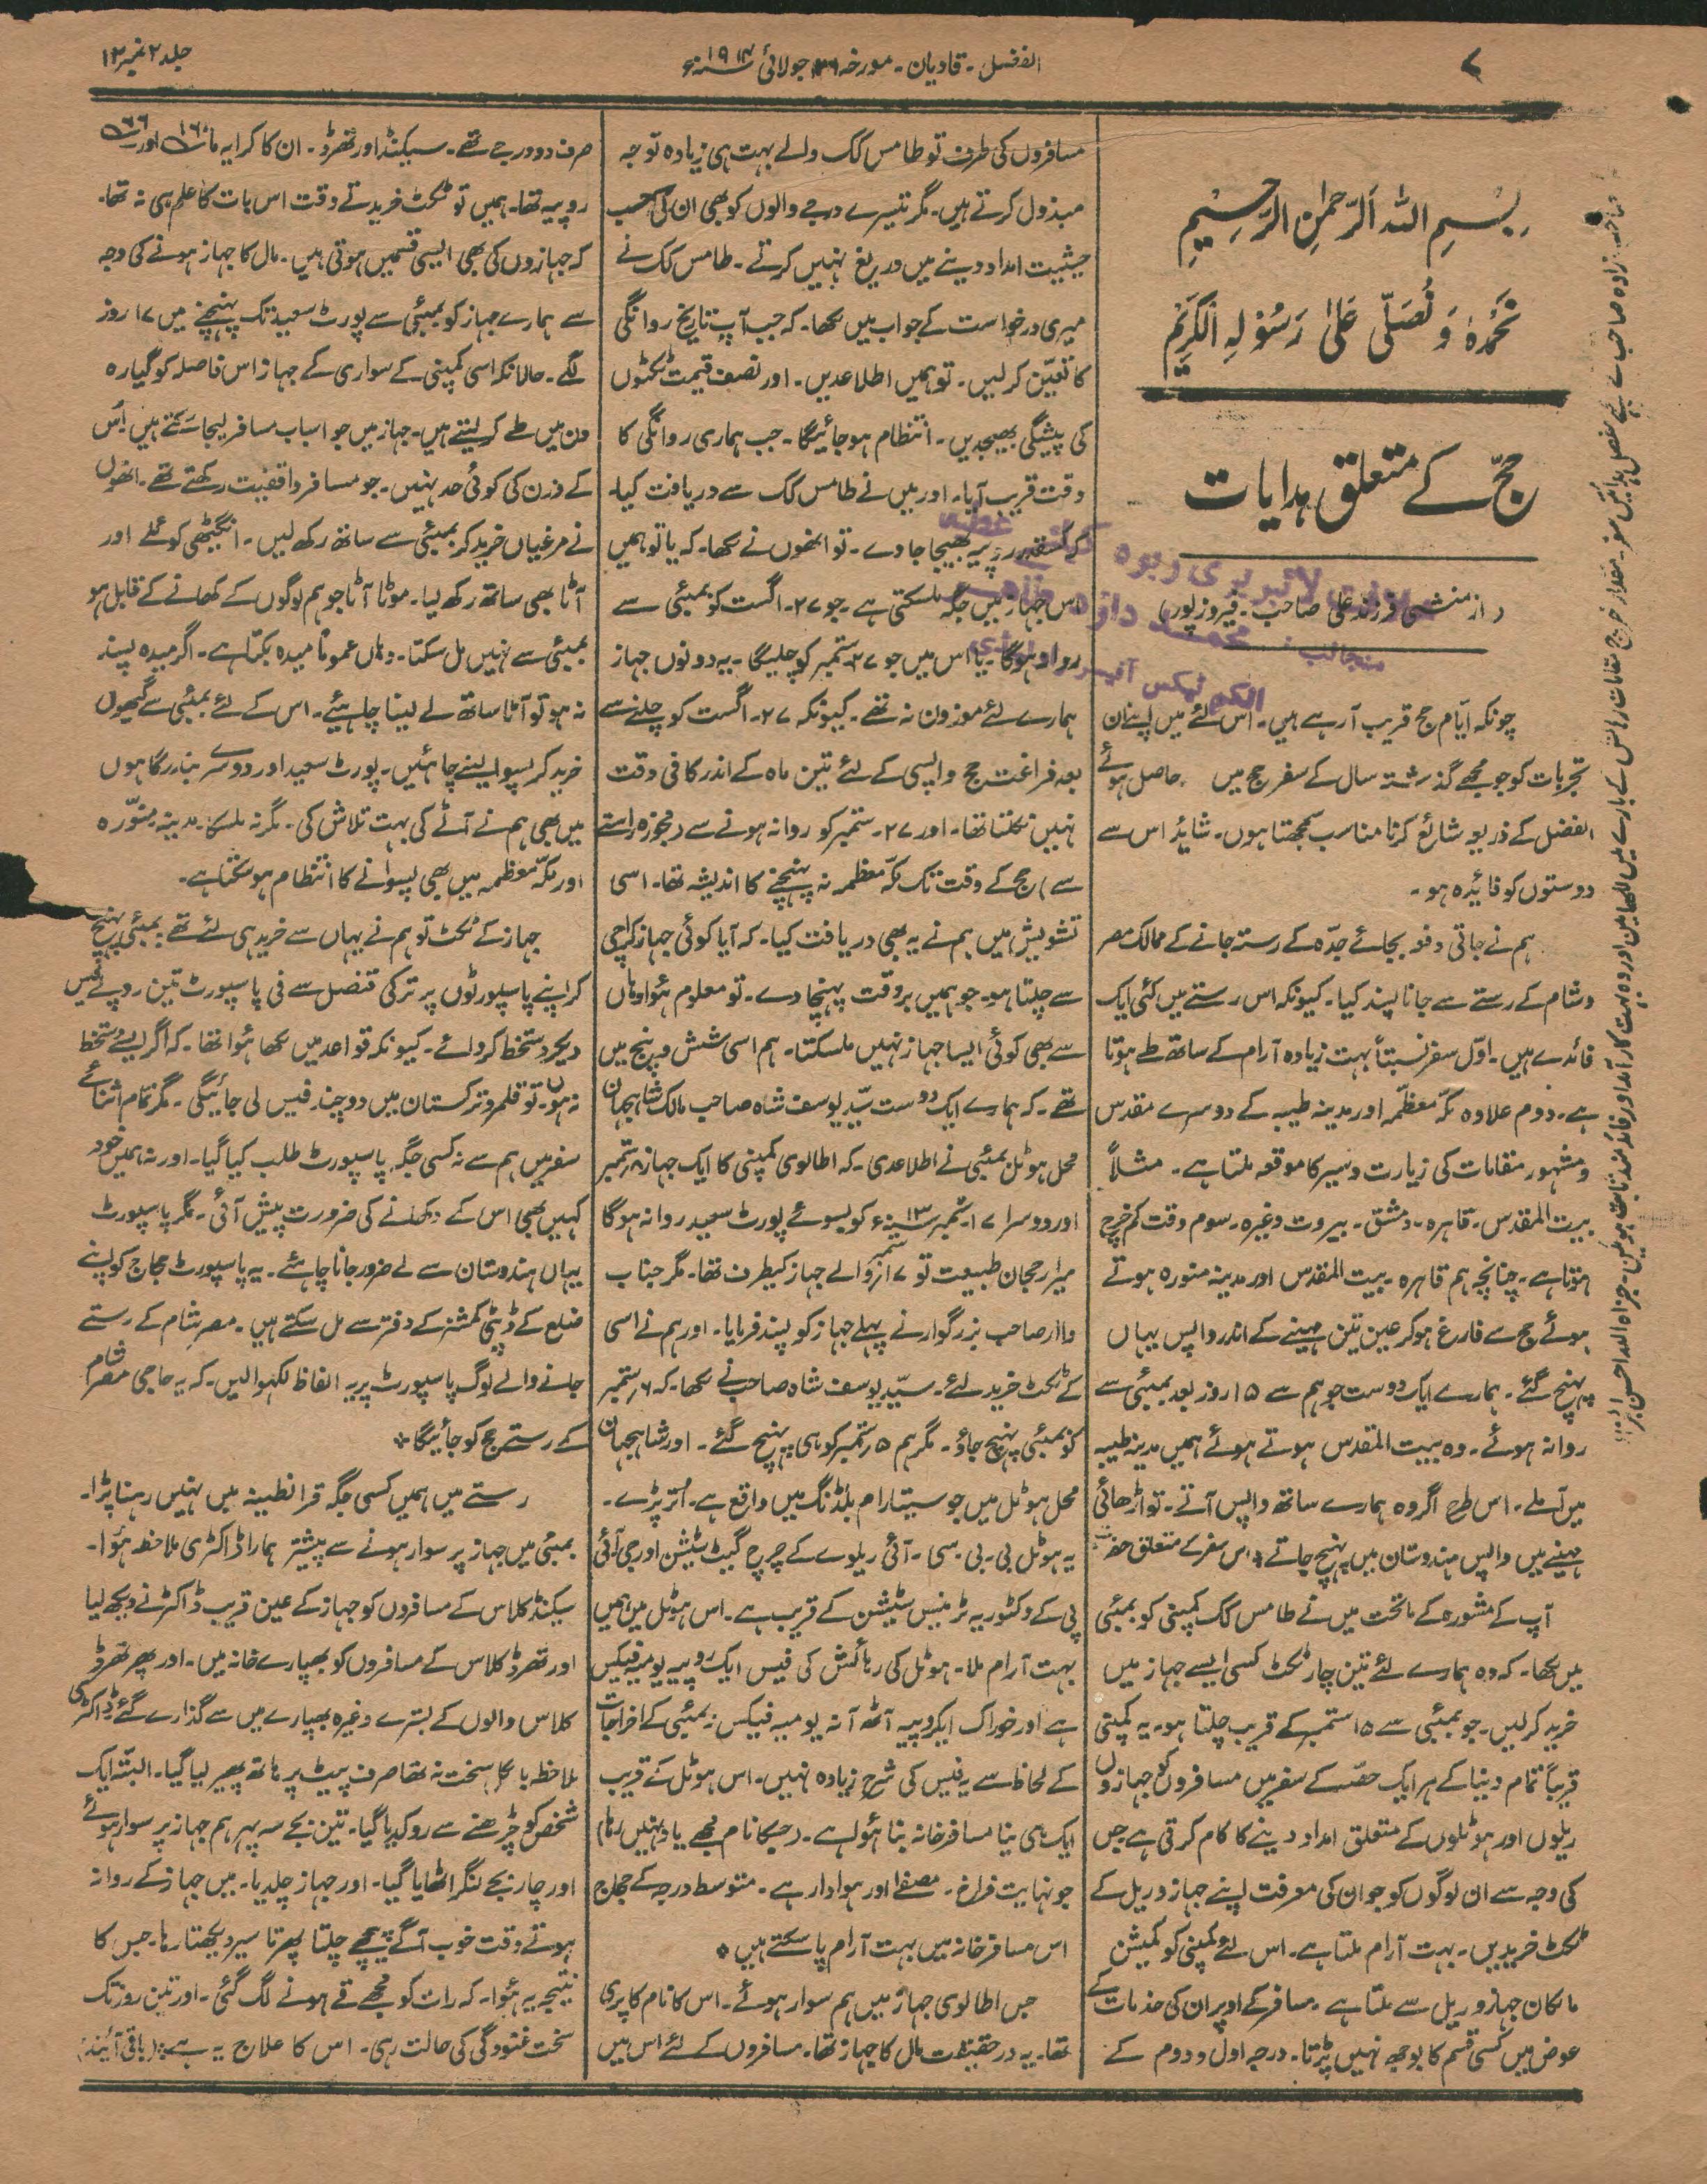 ۷
الفضل - قادیان - مورخہ ۲۶ جولائی ۱۹۱۴ء
جلد ۲ نمبر ۱۳
بِسْمِ اللہِ الرَّحمٰنِ الرَّحِیْمِ
نَحْمَدُہٗ وَ نُصَلِّی عَلیٰ رَسُوْلِہِ الْکَرِیْمِ
حجّ کے متعلق ہدایات
(از منشی فرزند علی صاحب - فیروزپور)
چونکہ ایّام حج قریب آ رہے ہیں۔ اس لئے میں اپنے ان
تجربات کو جو مجھے گذرشتہ سال کے سفر حج میں حاصل ہوئے
الفضل کے ذریعہ شائع کرنا مناسب سمجھتا ہوں۔ شائد اس سے
دوستوں کو فائدہ ہو۔
ہم نے جاتی دفعہ بجائے جدّہ کے رستہ جانے کے ممالک مصر
و شام کے رستے سے جانا پسند کیا۔ کیونکہ اس رستے میں کئی ایک
فائدے ہیں۔ اوّل سفر نسبتاً بہت زیادہ آرام کے ساتھ طے ہوتا
ہے۔ دوم علاوہ مکّہ معظّمہ اور مدینہ طیبہ کے دوسرے مقدس
و مشہور مقامات کی زیارت و سیر کا موقعہ ملتا ہے۔ مثلاً
بیت المقدس۔ قاہرہ۔ دمشق۔ بیروت وغیرہ۔ سوم وقت کم خرچ
ہوتا ہے۔ چنانچہ ہم قاہرہ۔ بیت المقدس اور مدینہ منورہ ہوتے
ہوئے حج سے فارغ ہو کر عین تین مہینے کے اندر واپس یہاں
پہنچ گئے۔ ہمارے ایک دوست جو ہم سے ۱۵ روز بعد بمبئی سے
روانہ ہوئے۔ وہ بیت المقدس ہوتے ہوئے ہمیں مدینہ طیبہ
میں آملے۔ اس طرح اگر وہ ہمارے ساتھ واپس آتے۔ تو اڑھائی
مہینے میں واپس ہندوستان میں پہنچ جاتے * اس سفر کے متعلق
آپ کے مشورہ کے ماتحت میں نے طامس کک کمپنی کو بمبئی
میں لکھا۔ کہ وہ ہمارے لئے تین چار ٹکٹ کسی ایسے جہاز میں
خرید کرلیں۔ جو بمبئی سے ۱۵ ستمبر کے قریب چلتا ہو۔ یہ کمپنی
قریباً تمام دنیا کے ہر ایک حصّہ کے سفر میں مسافروں کو جہازوں
ریلوں اور ہوٹلوں کے متعلق امداد دینے کا کام کرتی ہے جس
کی وجہ سے ان لوگوں کو جو ان کی معرفت اپنے جہاز و ریل کے
ٹکٹ خریدیں۔ بہت آرام ملتا ہے۔ اس لئے کمپنی کو کمیشن
مالکان جہاز و ریل سے ملتا ہے۔ مسافر کے اوپر ان کی خدمات کے
عوض میں کسی قسم کا بوجھ نہیں پڑتا۔ درجہ اول و دوم کے
مسافروں کی طرف تو طامس کک والے بہت ہی زیادہ توجہ
مبذول کرتے ہیں۔ مگر تیسرے درجے والوں کو بھی ان کی حسب
حیثیت امداد دینے میں دریغ نہیں کرتے۔ طامس کک نے
میری درخواست کے جواب میں لکھا۔ کہ جب آپ تاریخ روانگی
کا تعیّن کرلیں۔ تو ہمیں اطلاعدیں۔ اور نصف قیمت ٹکٹوں
کی پیشگی بھیجدیں۔ انتظام ہو جائیگا۔ جب ہماری روانگی کا
وقت قریب آیا۔ اور میں نے طامس کک سے دریافت کیا۔
کہ کسقدر روپیہ بھیجا جاوے۔ تو انھوں نے لکھا۔ کہ یا تو ہمیں
اس جہاز میں جگہ ملسکتی ہے۔ جو ۲۷۔ اگست کو بمبئی سے
روانہ ہوگا۔ یا اس میں جو ۲۷ ستمبر کو چلیگا۔ یہ دونوں جہاز
ہمارے لئے موزون نہ تھے۔ کیونکہ ۲۷۔ اگست کو چلنے سے
بعد فراغت حج واپسی کے لئے تین ماہ کے اندر کافی وقت
نہیں نکلتا تھا۔ اور ۲۷۔ ستمبر کو روانہ ہونے سے (مجوزہ راستے
سے) حج کے وقت تک مکّہ معظمہ نہ پہنچنے کا اندیشہ تھا۔ اسی
تشویش میں ہم نے یہ بھی دریافت کیا۔ کہ آیا کوئی جہاز کراچی
سے چلتا ہو۔ جو ہمیں بروقت پہنچا دے۔ تو معلوم ہوا وہاں
سے بھی کوئی ایسا جہاز نہیں ملسکتا۔ ہم اسی شش و پنج میں
تھے۔ کہ ہمارے ایک دوست سیّد یوسف شاہ صاحب مالک شاہجہان
محل ہوٹل بمبئی نے اطلاعدی۔ کہ اطالوی کمپنی کا ایک جہاز ۸ ستمبر
اور دوسرا ۱۷ ستمبر ۱۳ء کو بسوئے پورٹ سعید روانہ ہوگا
میرا رجحان طبیعت تو ۱۷ ستمبر والے جہاز کیطرف تھا۔ مگر جناب
والد صاحب بزرگوار نے پہلے جہاز کو پسند فرمایا۔ اور ہم نے اسی
کے ٹکٹ خرید لئے۔ سیّد یوسف شاہ صاحب نے لکھا۔ کہ ۶ ستمبر
کو بمبئی پہنچ جاؤ۔ مگر ہم ۵ ستمبر کو ہی پہنچ گئے۔ اور شاہجہان
محل ہوٹل میں جو سیتارام بلڈنگ میں واقع ہے۔ اُتر پڑے۔
یہ ہوٹل بی۔ بی۔ سی۔ آئی ریلوے کے چرچ گیٹ سٹیشن اور جی آئی
پی کے وکٹوریہ ٹرمینس سٹیشن کے قریب ہے۔ اس ہوٹل میں ہمیں
بہت آرام ملا۔ ہوٹل کی رہائش کی فیس ایک روپیہ یومیہ فیکس
ہے اور خوراک ایکروپیہ آٹھ آنہ یومیہ فیکس۔ بمبئی کے اخراجات
کے لحاظ سے یہ فیس کی شرح زیادہ نہیں۔ اس ہوٹل کے قریب
ایک ہی نیا مسافرخانہ بنا ہوا ہے۔ (جسکا نام مجھے یاد نہیں رہا)
جو نہایت فراخ۔ مصفّا اور ہوادار ہے۔ متوسط درجہ کے حجاج
اس مسافرخانہ میں بہت آرام پا سکتے ہیں *
جس اطالوی جہاز میں ہم سوار ہوئے۔ اس کا نام کاپری
تھا۔ یہ درحقیقت مال کا جہاز تھا۔ مسافروں کے لئے اس میں
صرف دو درجے تھے۔ سیکنڈ اور تھرڈ۔ ان کا کرایہ
روپیہ تھا۔ ہمیں تو ٹکٹ خریدتے وقت اس بات کا علم ہی نہ تھا۔
کہ جہازوں کی بھی ایسی قسمیں ہوتی ہیں۔ مال کا جہاز ہونے کی وجہ
سے ہمارے جہاز کو بمبئی سے پورٹ سعید تک پہنچنے میں ۱۷ روز
لگے۔ حالانکہ اسی کمپنی کے سواری کے جہاز اس فاصلہ کو گیارہ
دن میں طے کرلیتے ہیں۔ جہاز میں جو اسباب مسافر لیجا سکتے ہیں اُس
کے وزن کی کوئی حد نہیں۔ جو مسافر واقفیت رکھتے تھے۔ انھوں
نے مرغیاں خرید کر بمبئی سے ساتھ رکھ لیں۔ انگیٹھی کوئلے اور
آٹا بھی ساتھ رکھ لیا۔ موٹا آٹا جو ہم لوگوں کے کھانے کے قابل ہو
بمبئی سے نہیں مل سکتا۔ وہاں عموماً میدہ بکتا ہے۔ اگر میدہ پسند
نہ ہو تو آٹا ساتھ لے لینا چاہئیے۔ اس کے لئے بمبئی سے گیہوں
خرید کر پسوا لینے چاہئیں۔ پورٹ سعید اور دوسرے بندرگاہوں
میں بھی ہم نے آٹے کی بہت تلاش کی۔ مگر نہ ملسکا۔ مدینہ منوّرہ
اور مکّہ معظمہ میں بھی پسوانے کا انتظام ہو سکتا ہے۔
جہاز کے ٹکٹ تو ہم نے یہاں سے خرید ہی لئے تھے۔ بمبئی پہنچ
کر اپنے پاسپورٹوں پر ترکی قنصل سے فی پاسپورٹ تین روپے فیس
دیکر دستخط کروائے۔ کیونکہ قواعد میں لکھا ہوا تھا۔ کہ اگر ایسے دستخط
نہ ہوں۔ تو قلمرو ترکستان میں دوچند فیس لی جائیگی۔ مگر تمام اثنائے
سفر میں ہم سے نہ کسی جگہ پاسپورٹ طلب کیا گیا۔ اور نہ ہمیں خود
کہیں بھی اس کے دکھانے کی ضرورت پیش آئی۔ مگر پاسپورٹ
یہاں ہندوستان سے لے ضرور جانا چاہئے۔ یہ پاسپورٹ حجاج کو اپنے
ضلع کے ڈپٹی کمشنر کے دفتر سے مل سکتے ہیں۔ مصر و شام کے رستے
جانے والے لوگ پاسپورٹ پر یہ الفاظ لکھوالیں۔ کہ یہ حاجی مصر و شام
کے رستے حج کو جائیگا *
رستے میں ہمیں کسی جگہ قرانطینہ میں نہیں رہنا پڑا۔
بمبئی میں جہاز پر سوار ہونے سے پیشتر ہمارا ڈاکٹری ملاحظہ ہوا۔
سیکنڈ کلاس کے مسافروں کو جہاز کے عین قریب ڈاکٹر نے دیکھ لیا
اور تھرڈ کلاس کے مسافروں کو بھپارے خانہ میں۔ اور پھر تھرڈ
کلاس والوں کے بسترے وغیرہ بھپارے میں سے گذارے گئے ڈاکٹری
ملاحظہ بالکل سخت نہ تھا صرف پیٹ پر ہاتھ پھیر لیا گیا۔ البتّہ ایک
شخص کو چڑھنے سے روکدیا گیا۔ تین بجے سہ پہر ہم جہاز پر سوار ہوئے
اور چار بجے لنگر اٹھایا گیا۔ اور جہاز چلدیا۔ میں جہاز کے روانہ
ہوتے وقت خوب آگے پیچھے چلتا پھرتا سیر دیکھتا رہا۔ جس کا
نتیجہ یہ ہوا۔ کہ رات کو مجھے قے ہونے لگ گئی۔ اور تین روز تک
سخت غنودگی کی حالت رہی۔ اس کا علاج یہ ہے۔ (باقی آئندہ)
صاحبزادہ صاحب نے مجھے مفصل ہدایتیں سفر۔ مقدار خرچ مقامات رہائش کے بارے میں لکھا دیں اور وہ بہت کار آمد اور فائدہ مند ثابت ہوئیں۔ جزاہ اللہ احسن الجزاء
لائبریری ربوہ
منجانب: محمد داؤد
انکم ٹیکس آفیسر